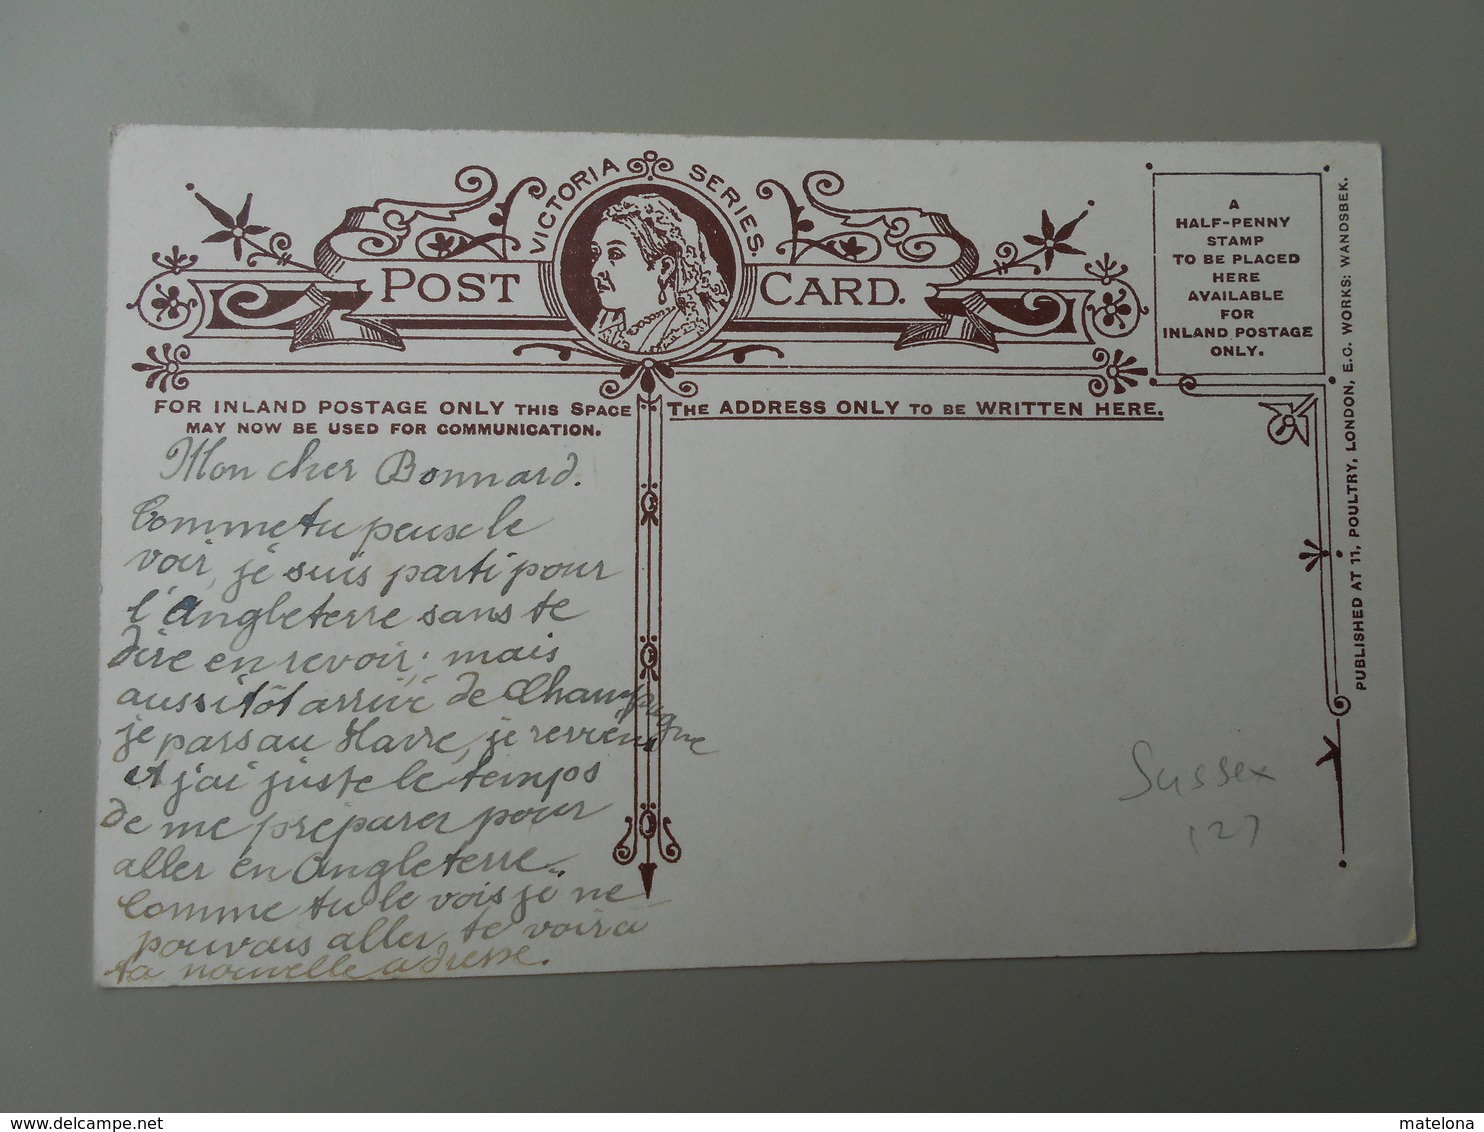 VICTORIA SERIES.
POST CARD.
A
HALF-PENNY
STAMP
TO BE PLACED
HERE
AVAILABLE
FOR
INLAND POSTAGE
ONLY.
FOR INLAND POSTAGE ONLY THIS SPACE
MAY NOW BE USED FOR COMMUNICATION.
THE ADDRESS ONLY TO BE WRITTEN HERE.
Mon cher Bonnard.
Comme tu peux le
voir, je suis parti pour
l'Angleterre sans te
dire en revoir; mais
aussitôt arrivé de Champagne
je pars au Havre, je reviens
et j'ai juste le temps
de me préparer pour
aller en Angleterre.
Comme tu le vois je ne
pouvais aller te voir à
ta nouvelle adresse.
Sussex
127
PUBLISHED AT 11, POULTRY, LONDON, E.C. WORKS: WANDSBEK.
matelona